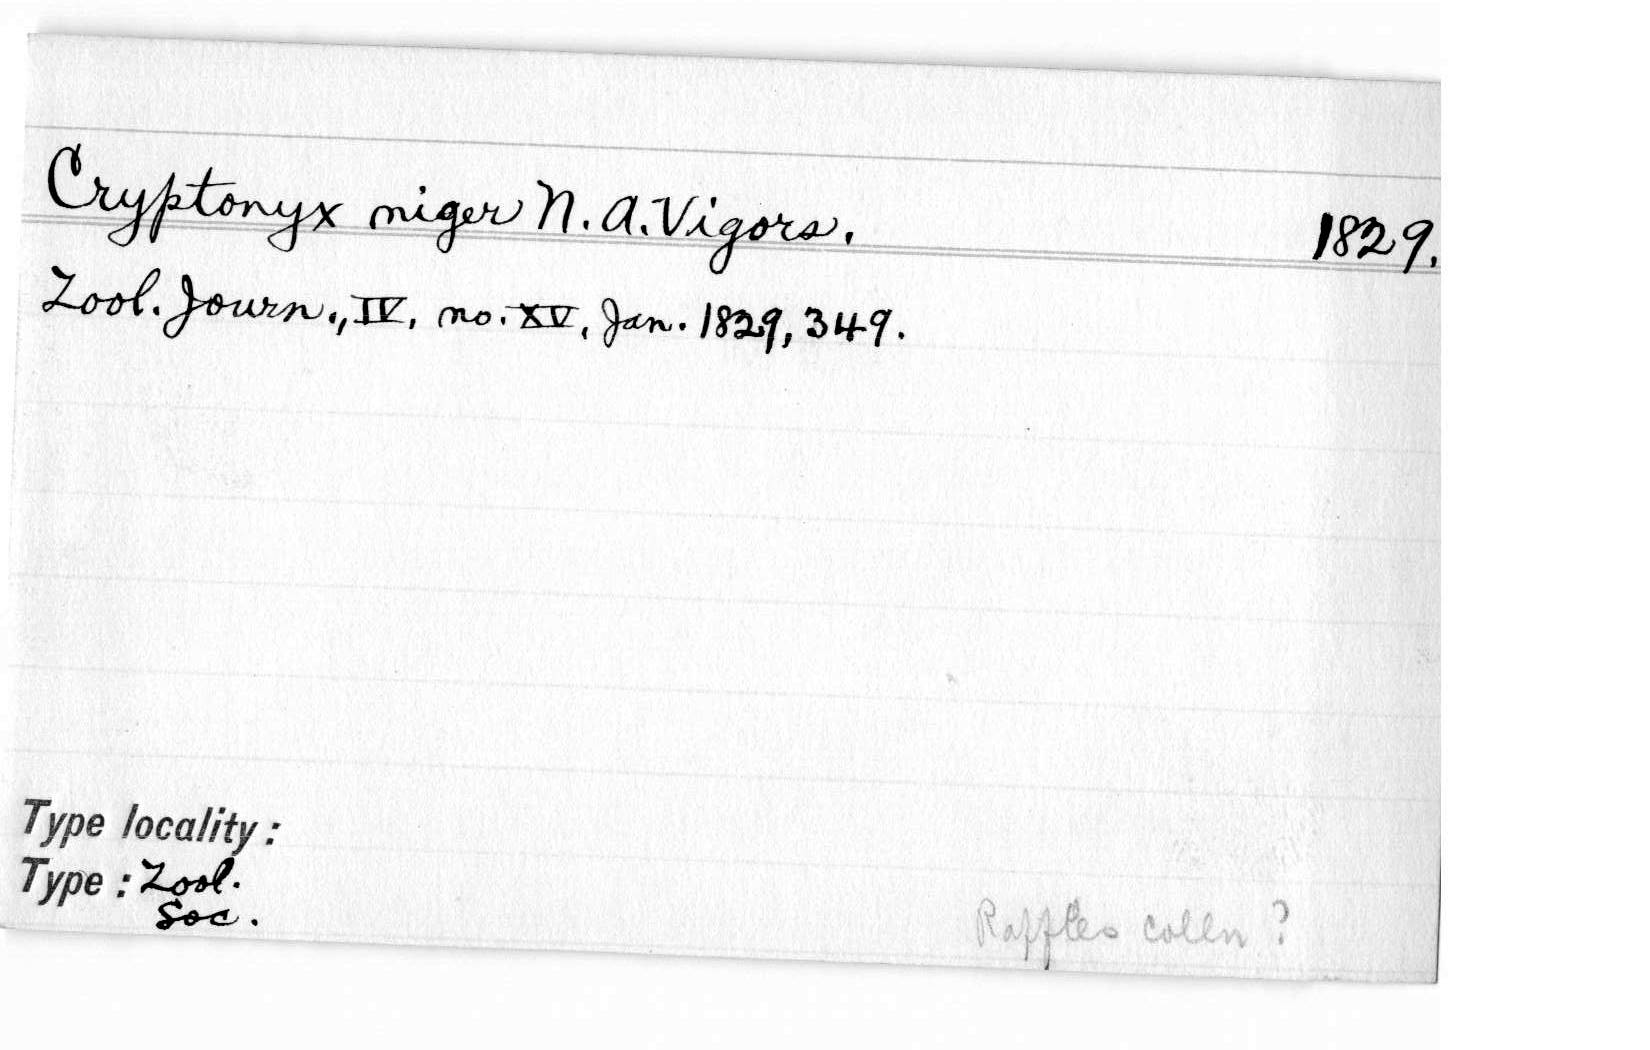 Cryptonyx niger N. A. Vigors. 1829.
Zool. Journ., IV, no. XV, Jan. 1829, 349.
Type locality:
Type: Zool.
Soc.
Raffles colln?